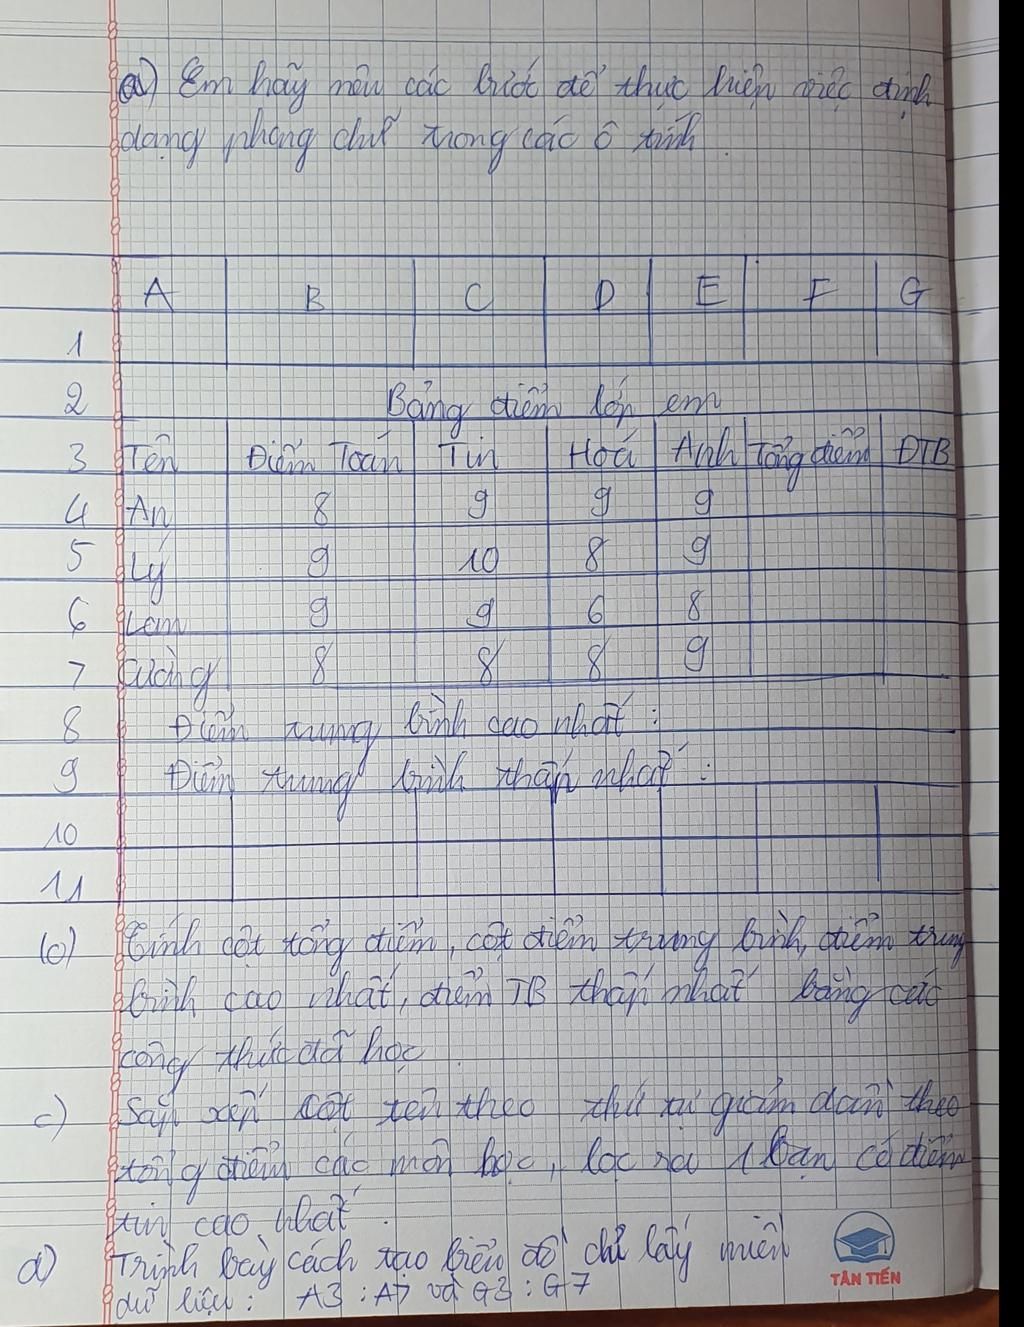 a) Em hãy nêu các bước để thực hiện việc định
dạng phông chữ trong các ô tính
A B C D E F G
1
2 Bảng điểm lớp em
3 Tên Điểm Toán Tin Hoá Anh Tổng điểm ĐTB
4 An 8 9 9 9
5 Lý 9 10 8 9
6 Lam 9 9 6 8
7 Cường 8 8 8 9
8 Điểm trung bình cao nhất :
9 Điểm trung bình thấp nhất :
10
11
b) Tính cột tổng điểm, cột điểm trung bình, điểm trung
bình cao nhất, điểm TB thấp nhất bằng các
công thức đã học
c) Sắp xếp cột tên theo thứ tự giảm dần theo
tổng điểm các môn học, lọc ra 1 bạn có điểm
tin cao nhất.
d) Trình bày cách tạo biểu đồ chỉ lấy miền
dữ liệu : A3 : A7 và G3 : G7
TÂN TIẾN